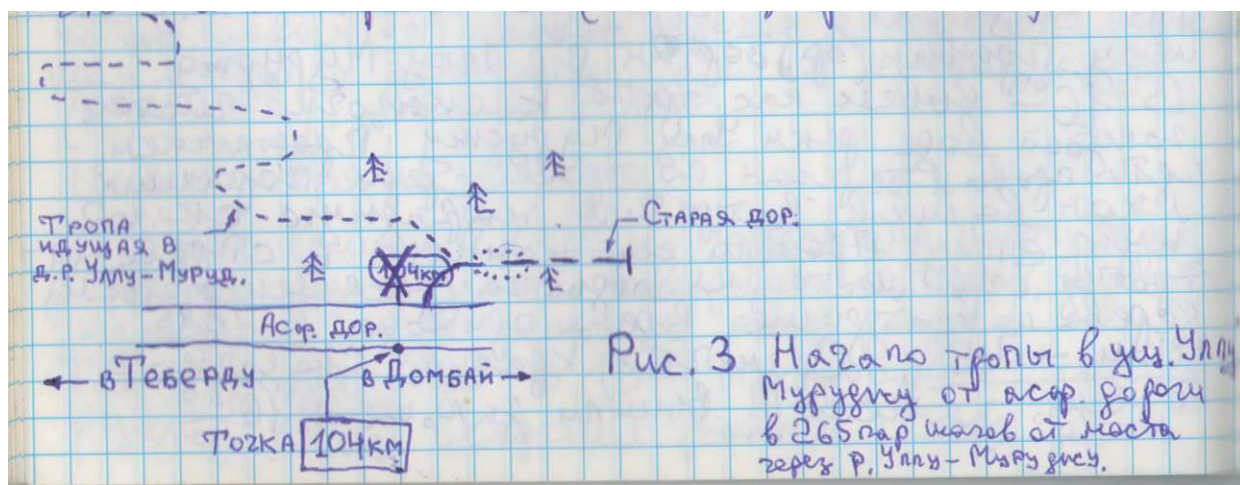 Старая дор.
Тропа
идущая в
д.р. Уллу-Муруд.
104км
Асф. дор.
← в Теберду
в Домбай →
Точка 104км
Рис. 3 Начало тропы в ущ. Уллу
Муруджу от асф. дороги
в 265 пар шагов от моста
через р. Уллу-Муруджу.